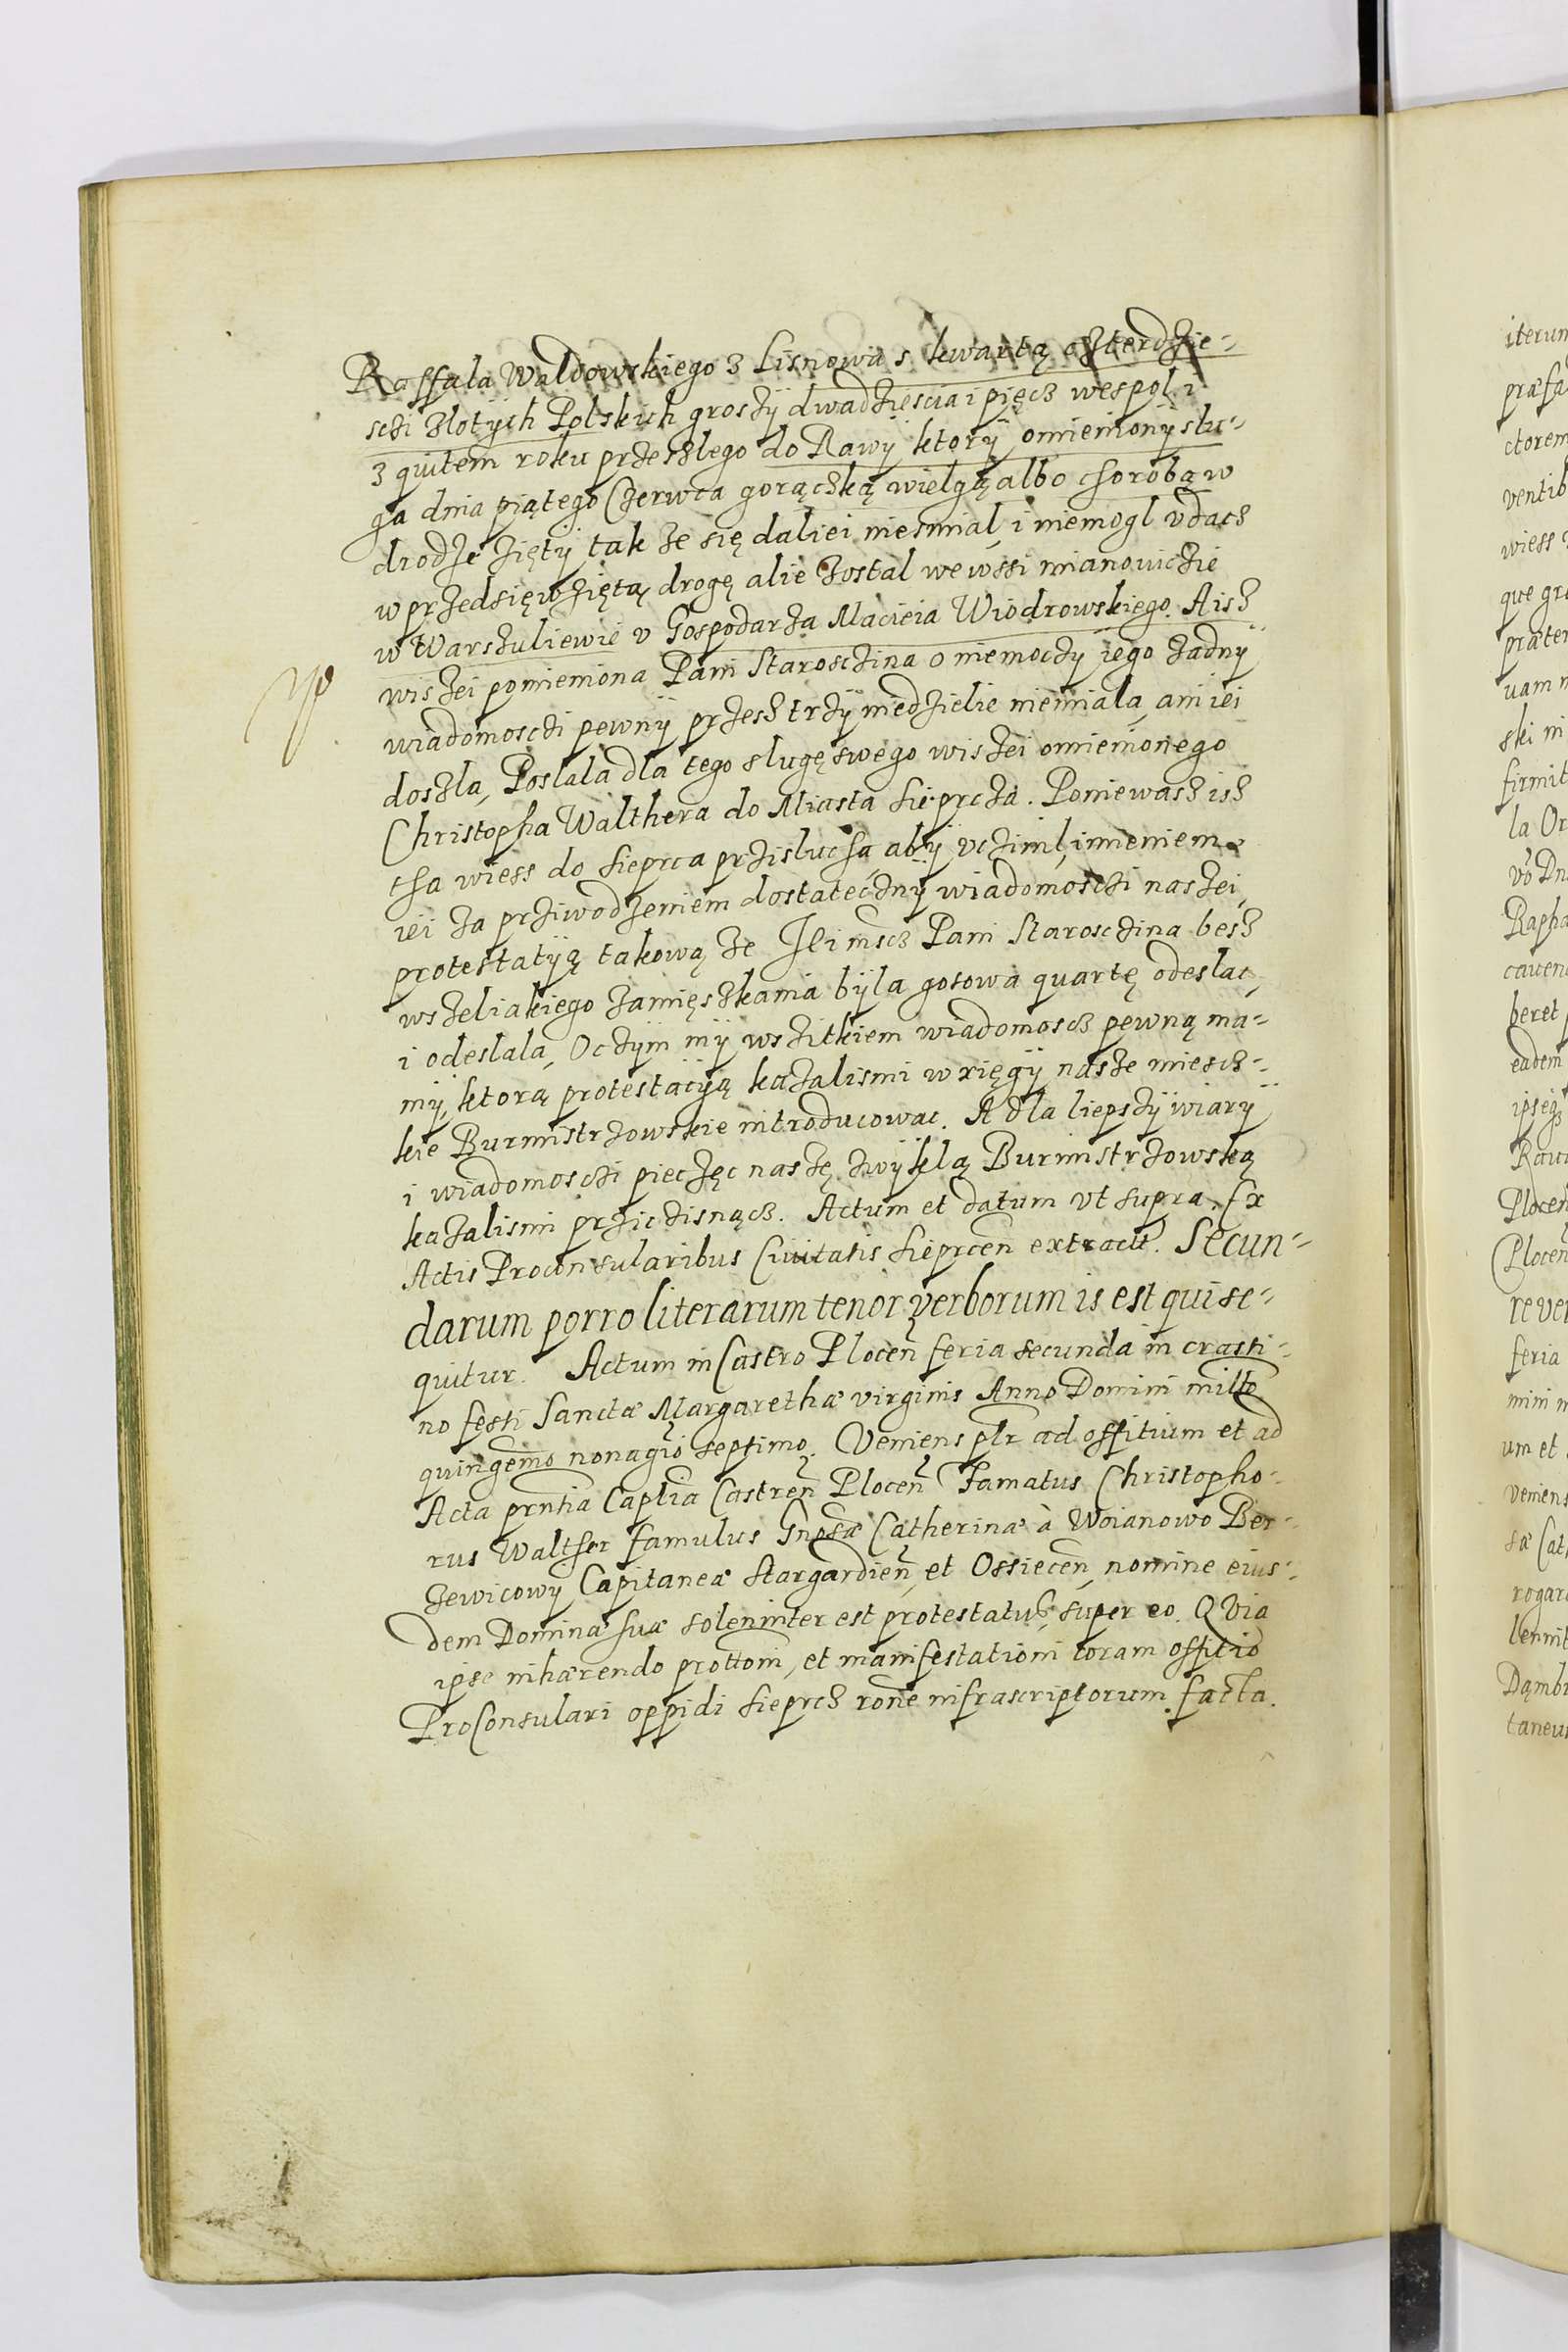 Raffala Waldowskiego z Lisnowa s kwartą czterdzie-
sczi zlotych Polskich groszÿ dwadziescia i pięcz wespol i
z quitem roku przeszlego do Rawÿ ktorÿ omienionÿ slu-
ga dnia piątego Czerwca gorączką wielgą albo choroba w
drodze zięty tak ze się daliei niesmial, i niemogl udacz
w przedsięwzięta drogę alie zostal we wssi mianowiczie
w Warszuliewie v Gospodarza Macieia Wiodrowskiego. Aisz
wiszei pomieniona Pani Starosczina o niemoczÿ iego zadnÿ
wiadomosczi pewnÿ przesz trzÿ niedzielie niemiala, ani iei
doszla, Poslala dla tego slugę swego wiszei omienionego
Christopha Walthera do Miasta Sieprcza. Poniewasz isz
tha wiess do Sieprca przislucha, abÿ uczinil, imieniem
iei za prziwodzeniem dostatecznÿ wiadomosczi naszei,
protestatÿą takową ze Jei mscz Pani Starosczina besz
wszeliakiego zamięszkania bÿla gotowa quartę odeslac,
i odeslala, Oczÿm mÿ wszitkiem wiadomoscz pewną ma-
mÿ, ktorą protestacÿą kazalismi w xięgÿ nasze miescz-
kie Burmistrzowskie introducowac. A dla liepszÿ wiarÿ
i wiadomosczi pieczęc naszę zwÿklą Burmistrzowską
kazalismi prziczisnącz. Actum et datum vt supra. Ex
Actis Proconsularibus Ciuitatis Sieprcen extract. Secun-
darum porro literarum tenor verborum is est qui se-
quitur. Actum in Castro Plocen feria secunda in crasti-
no festi Sanctæ Margarethæ virginis Anno Domini millo
quingemo nonagio septimo. Veniens plr ad offitium et ad
Acta prntia Caplia Castren Plocen Famatus Christopho-
rus Walther famulus Gnosæ Catherinæ à Woianowo Ber-
zewicowÿ Capitaneæ Stargardien, et Ossiecen, nomine eius-
dem Dominæ suæ soleniter est protestatus, super eo. QVia
ipse inhærendo prottoni, et manifestationi coram offitio
ProConsulari oppidi Sieprcz rone infrascriptorum facta.